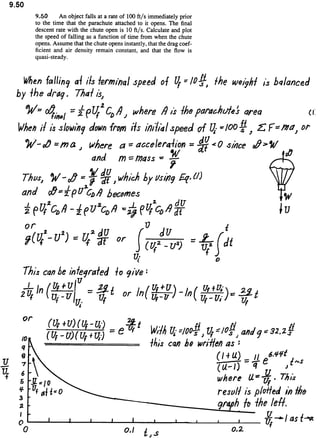 9.50
9.50 An object falls at a rate of 100 ft/s immediately prior
to the time that the parachute attached to it opens. The final
descent rate with the chute open is 10 ft/s. Calculate and plot
the speed of falling as a function of time from when the chute
opens. Assume that the chute opens instantly, that the drag coef-
ficient and air density remain constant, and that the flow is
quasi-steady.
When falling at its terminal speed of U_f = 10 ft/s, the weight is balanced
by the drag. That is,
W = 𝒟_final = ½ρU_f² C_D A, where A is the parachute's area
When it is slowing down from its initial speed of U_i = 100 ft/s, ΣF = ma, or
W - 𝒟 = ma, where a = acceleration = dU/dt < 0 since 𝒟 > W
and m = mass = W/g
Thus, W - 𝒟 = W/g dU/dt, which by using Eq.(1)
and 𝒟 = ½ρU²C_D A becomes
½ρU_f²C_D A - ½ρU²C_D A = 1/2g ρU_f²C_D A dU/dt
or
g(U_f² - U²) = U_f² dU/dt or ∫ dU/(U_f² - U²) = g/U_f² ∫ dt
This can be integrated to give:
1/2U_f ln(U_f+U / U_f-U) | = g/U_f² t or ln(U_f+U / U_f-U) - ln(U_f+U_i / U_f-U_i) = 2g/U_f t
or
(U_f+U)(U_f-U_i) / (U_f-U)(U_f+U_i) = e^(2g/U_f t) With U_i = 100 ft/s, U_f = 10 ft/s, and g = 32.2 ft/s²
this can be written as:
(1+u)/(u-1) = 11/9 e^6.44t, t~s
where u = U/U_f. This
result is plotted in the
graph to the left.
U/U_f → 1 as t→∞
W
U
U/U_f
10
9
8
7
6
5
4
3
2
1
0
U/U_f = 10
at t=0
0 0.1 t, s 0.2